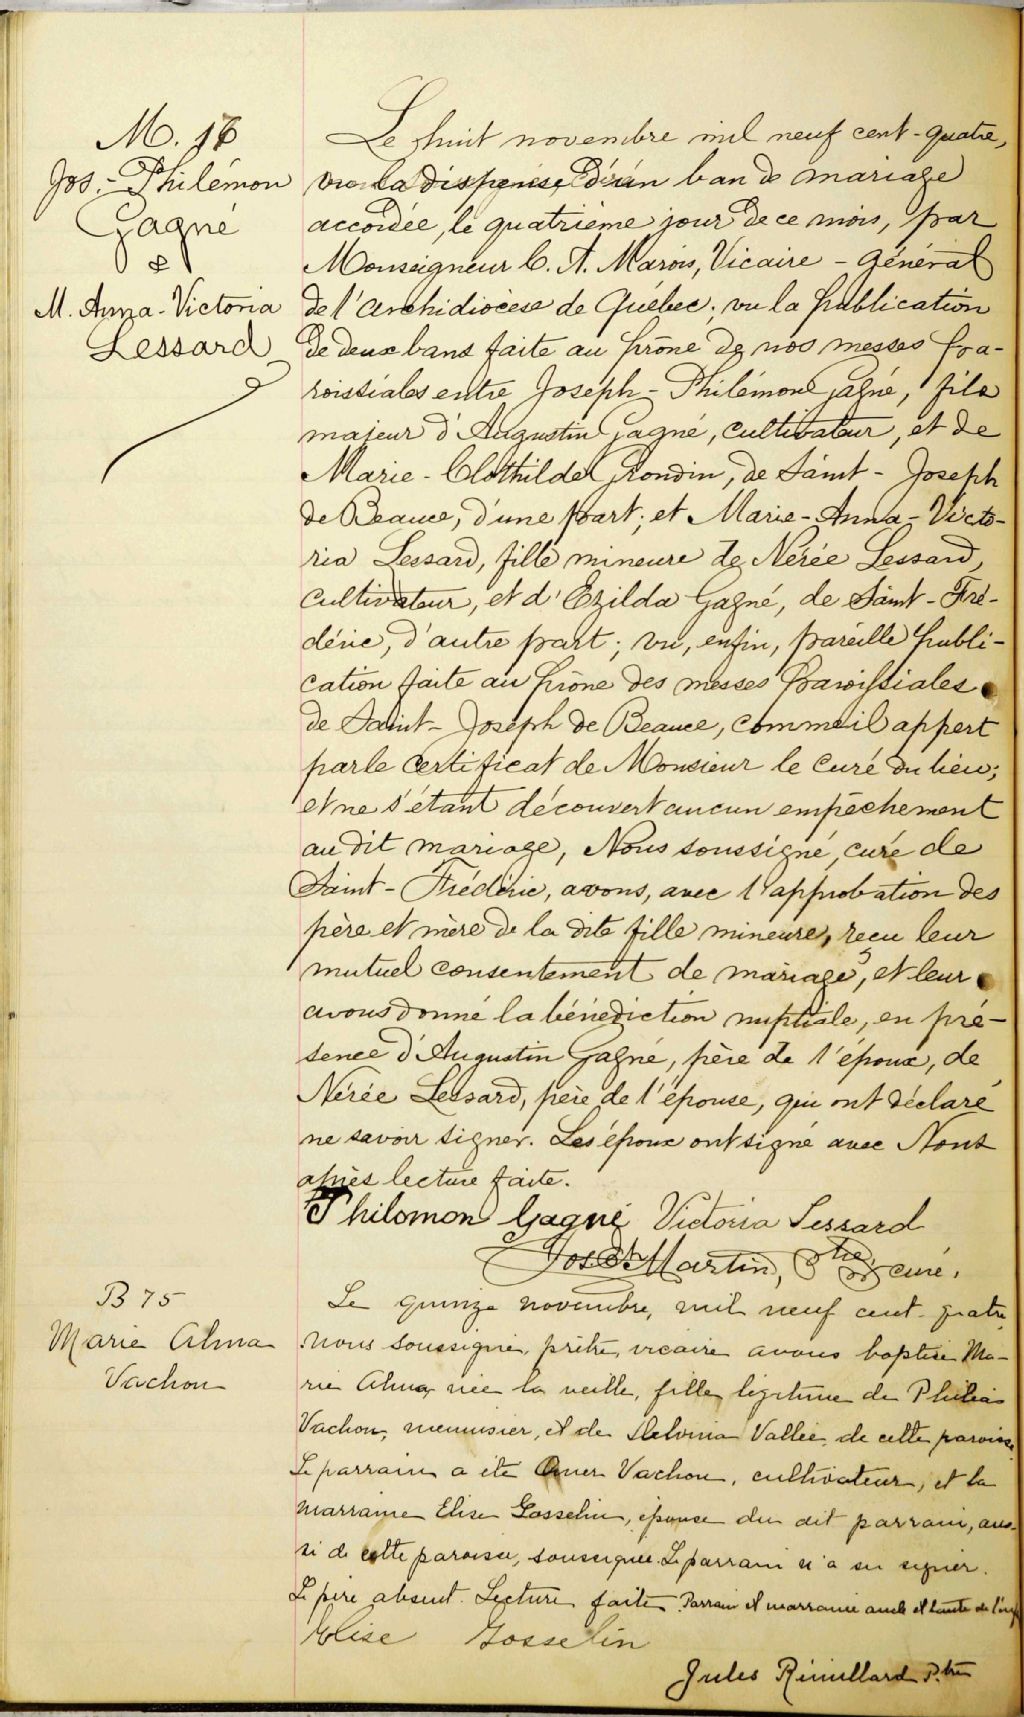 M. 16
Jos.-Philémon
Gagné
&
M. Anna-Victoria
Lessard
Le huit novembre mil neuf cent-quatre,
vu la dispense d'un ban de mariage
accordée, le quatrième jour de ce mois, par
Monseigneur C. A. Marois, Vicaire-Général
de l'archidiocèse de Québec; vu la publication
de deux bans faite au prône de nos messes pa-
roissiales entre Joseph-Philémon Gagné, fils
majeur d'Augustin Gagné, cultivateur, et de
Marie-Clothilde Grondin, de Saint-Joseph
de Beauce, d'une part; et Marie-Anna-Victo-
ria Lessard, fille mineure de Nérée Lessard,
cultivateur, et d'Ezilda Gagné, de Saint-Fré-
déric, d'autre part; vu, enfin, pareille publi-
cation faite au prône des messes paroissiales
de Saint-Joseph de Beauce, comme il appert
par le certificat de Monsieur le curé du lieu;
et ne s'étant découvert aucun empêchement
au dit mariage, Nous soussigné, curé de
Saint-Frédéric, avons, avec l'approbation des
père et mère de la dite fille mineure, reçu leur
mutuel consentement de mariage, et leur
avons donné la bénédiction nuptiale, en pré-
sence d'Augustin Gagné, père de l'époux, de
Nérée Lessard, père de l'épouse, qui ont déclaré
ne savoir signer. Les époux ont signé avec Nous
après lecture faite.
Philomon Gagné Victoria Lessard
Jos. Martin, Ptre, curé.
B 75
Marie Alma
Vachon
Le quinze novembre, mil neuf cent-quatre,
nous soussigné, prêtre, vicaire avons baptisé Ma-
rie Alma, née la veille, fille légitime de Philias
Vachon, menuisier, et de Delvina Vallée, de cette paroisse.
Le parrain a été Omer Vachon, cultivateur, et la
marraine Elise Gosselin, épouse du dit parrain, aus-
si de cette paroisse, soussignée. Le parrain n'a su signer.
Le père absent. Lecture faite. Parrain et marraine oncle et tante de l'enft
Elise Gosselin
Jules Rémillard Ptre